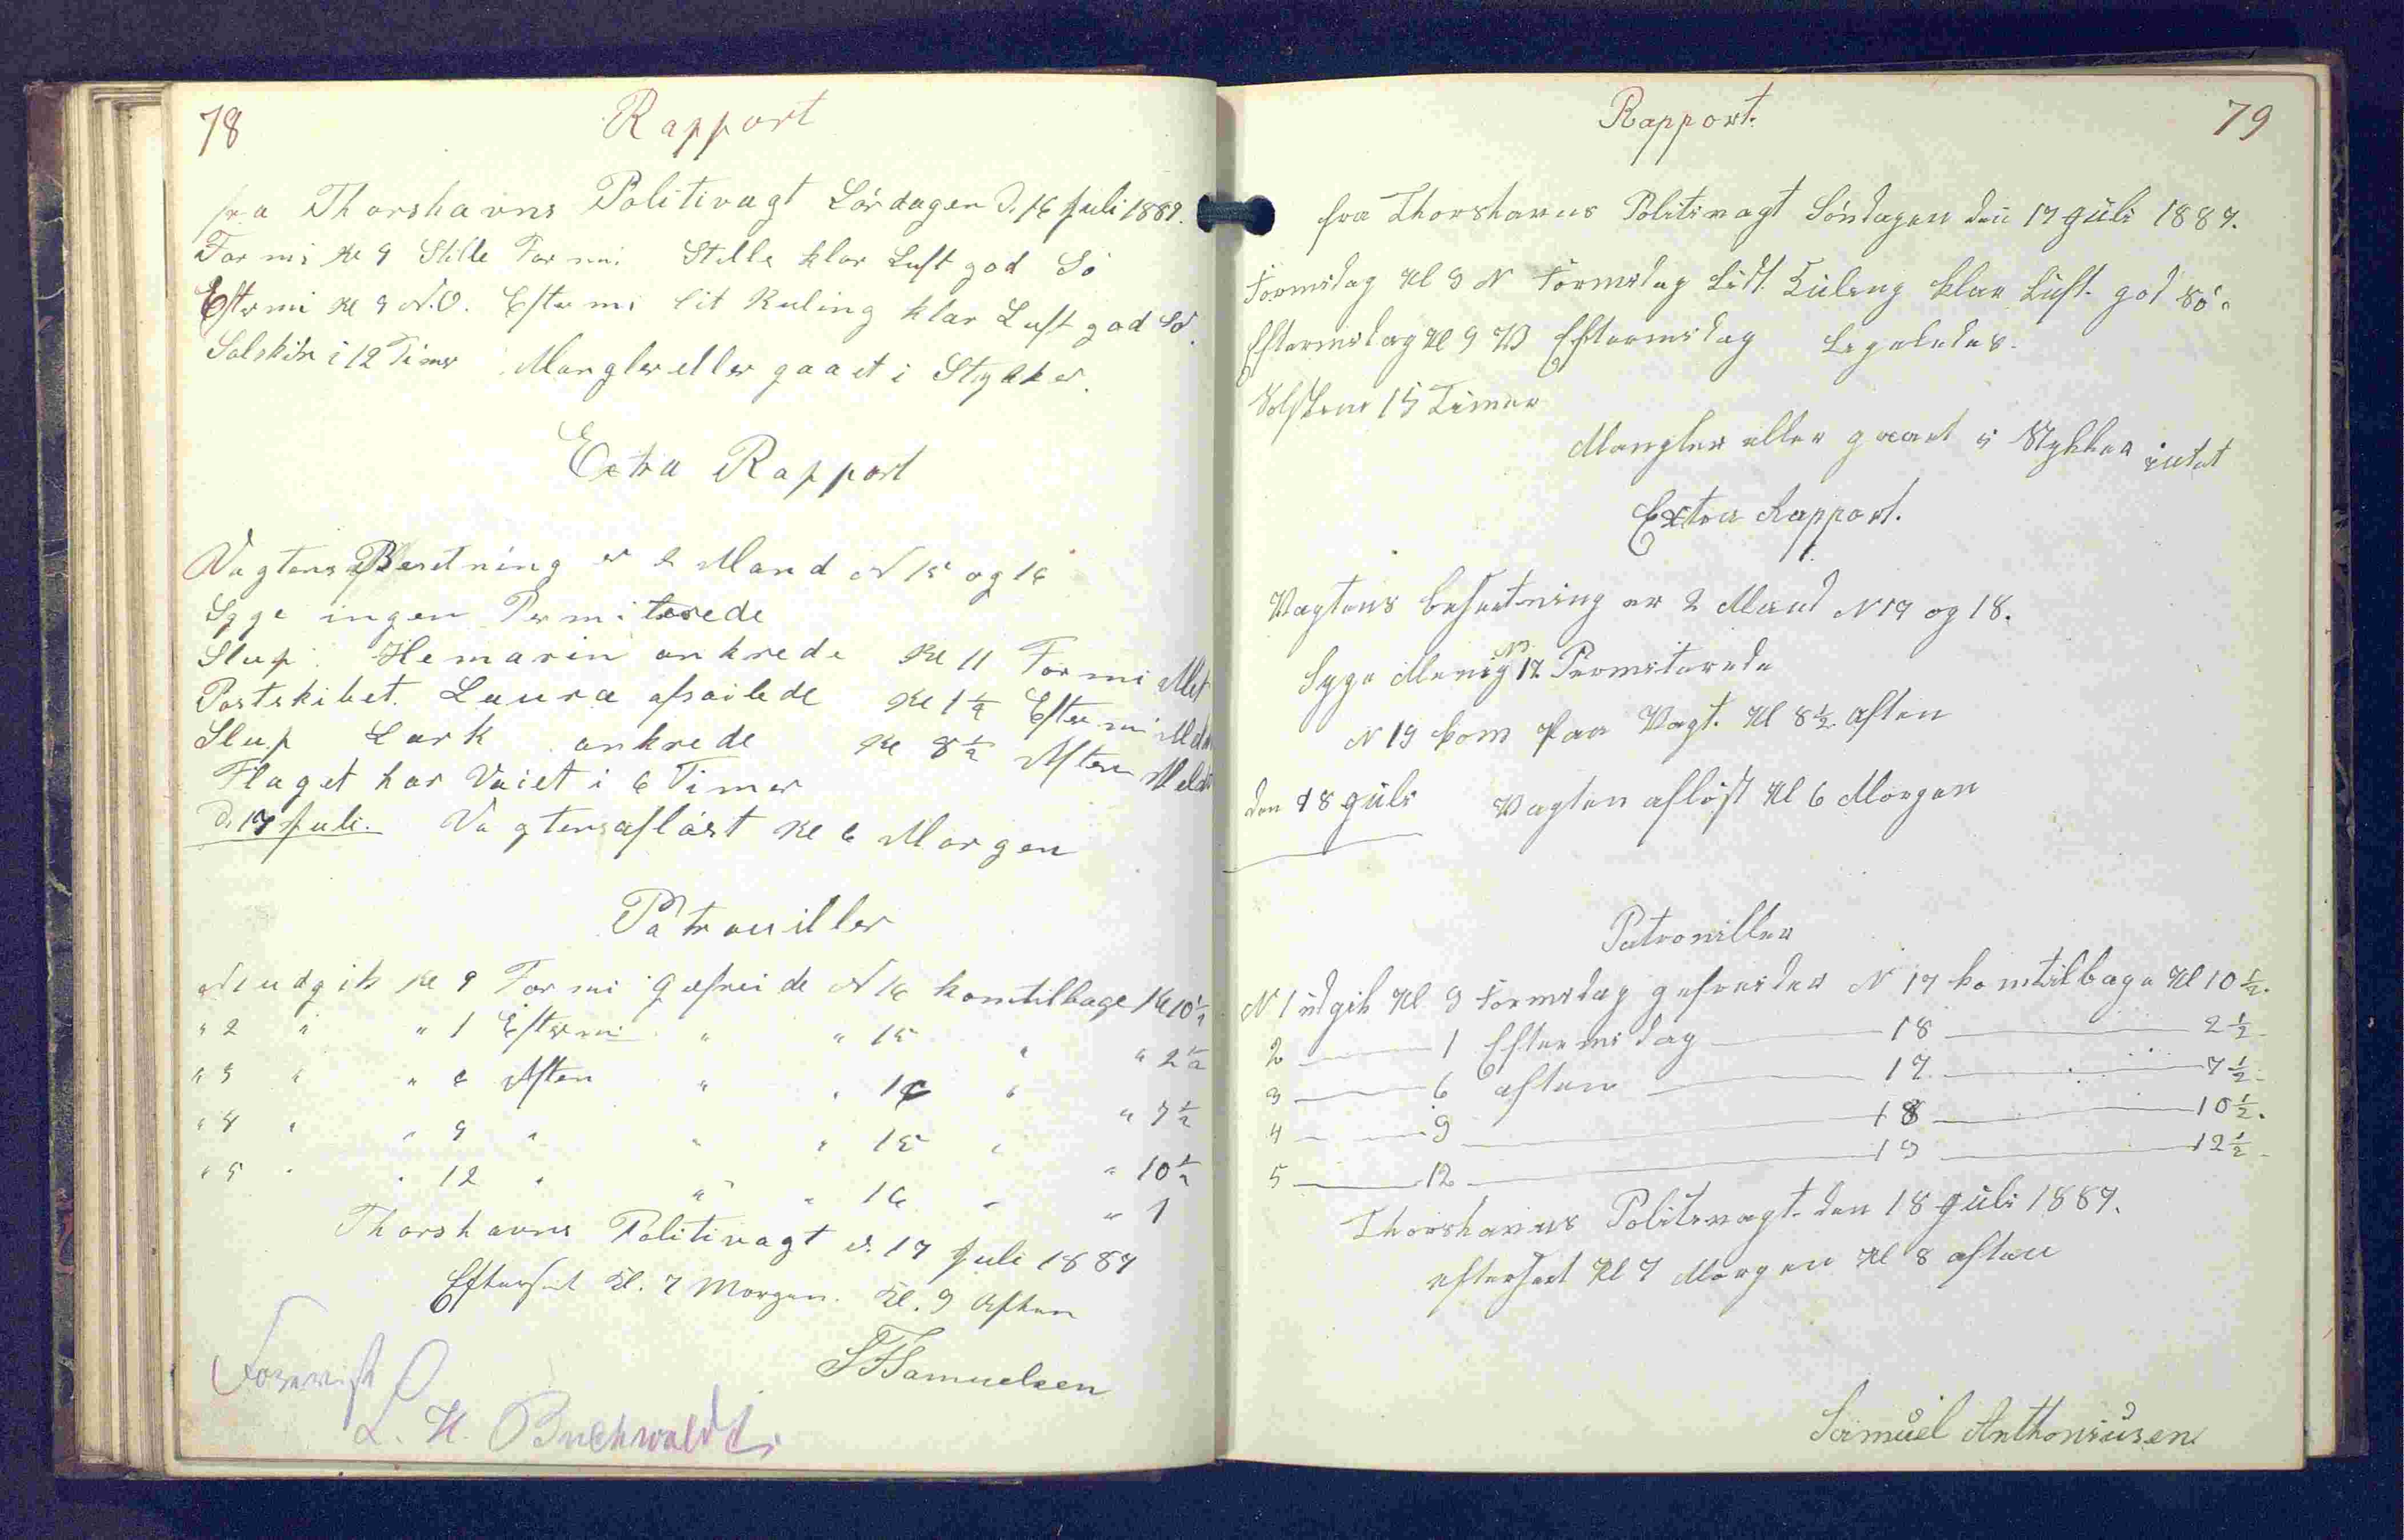 78
Rapport
fra Thorshavns Politivagt Lørdagen d. 16 Juli 1887.
For mi Kl 9 Stille For mi Stille klar Luft god Sö
Efter mi Kl 9 N.O. Efter mi lit Kuling klar Luft god Sö.
Solskin i 12 Timer Mangler eller gaaet i Stykker.
Extra Rapport
Vagtens Besetning er 2 Mand N 15 og 16
Syge ingen Permiterede
Slup Hemarin ankrede Kl 11 For mi Melt
Postskibet Laura afseilede Kl 1¼ Efter mi
Slup Lark ankrede Kl 8½ Aften
Flaget har Vaiet i 6 Timer
D. 17 Juli. Vagtens aflöst Kl 6 Morgen
Patrouiller
N 1 udgik Kl 9 For mi gefreide N 16 kom tilbage Kl 10½
" 2 " " 1 Efter mi " " 15 " " 2½
" 3 " " 6 Aften " " 16 " " 7½
" 4 " " 9 " " " 15 " " 10½
" 5 " " 12 " " " 16 " " 1
Thorshavns Politivagt d. 17 Juli 1887
Efterset Kl. 7 Morgen. Kl. 9 Aften
Samuelsen
Forevist
L. H. Buchwaldt
Rapport.
79
fra Thorshavns Politivagt Söndagen den 17 Juli 1887.
Formidag Kl 9 N Formidag Lidt Kuling klar Luft god Sö.
Eftermidag Kl 9 V Eftermidag Ligeledes.
Solskin 15 Timer
Mangler eller gaaet i Stykker intet
Extra Rapport.
Vagtens besetning er 2 Mand N 17 og 18.
Syge Menig N 17 Permiterede
N 19 kom paa Vagt. Kl 8½ aften
den 18 Juli Vagten aflöst Kl 6 Morgen
Patroniller
N 1 udgik Kl 9 Formidag gefreider N 17 kom tilbage Kl 10½.
2 — 1 Eftermidag — 18 — 2½
3 — 6 aften — 17 — 7½
4 — 9 — 18 — 10½.
5 — 12 — 19 — 12½
Thorshavns Politivagt den 18 Juli 1887.
efterset Kl 7 Morgen Kl 8 aften
Samuel Anthoniusen